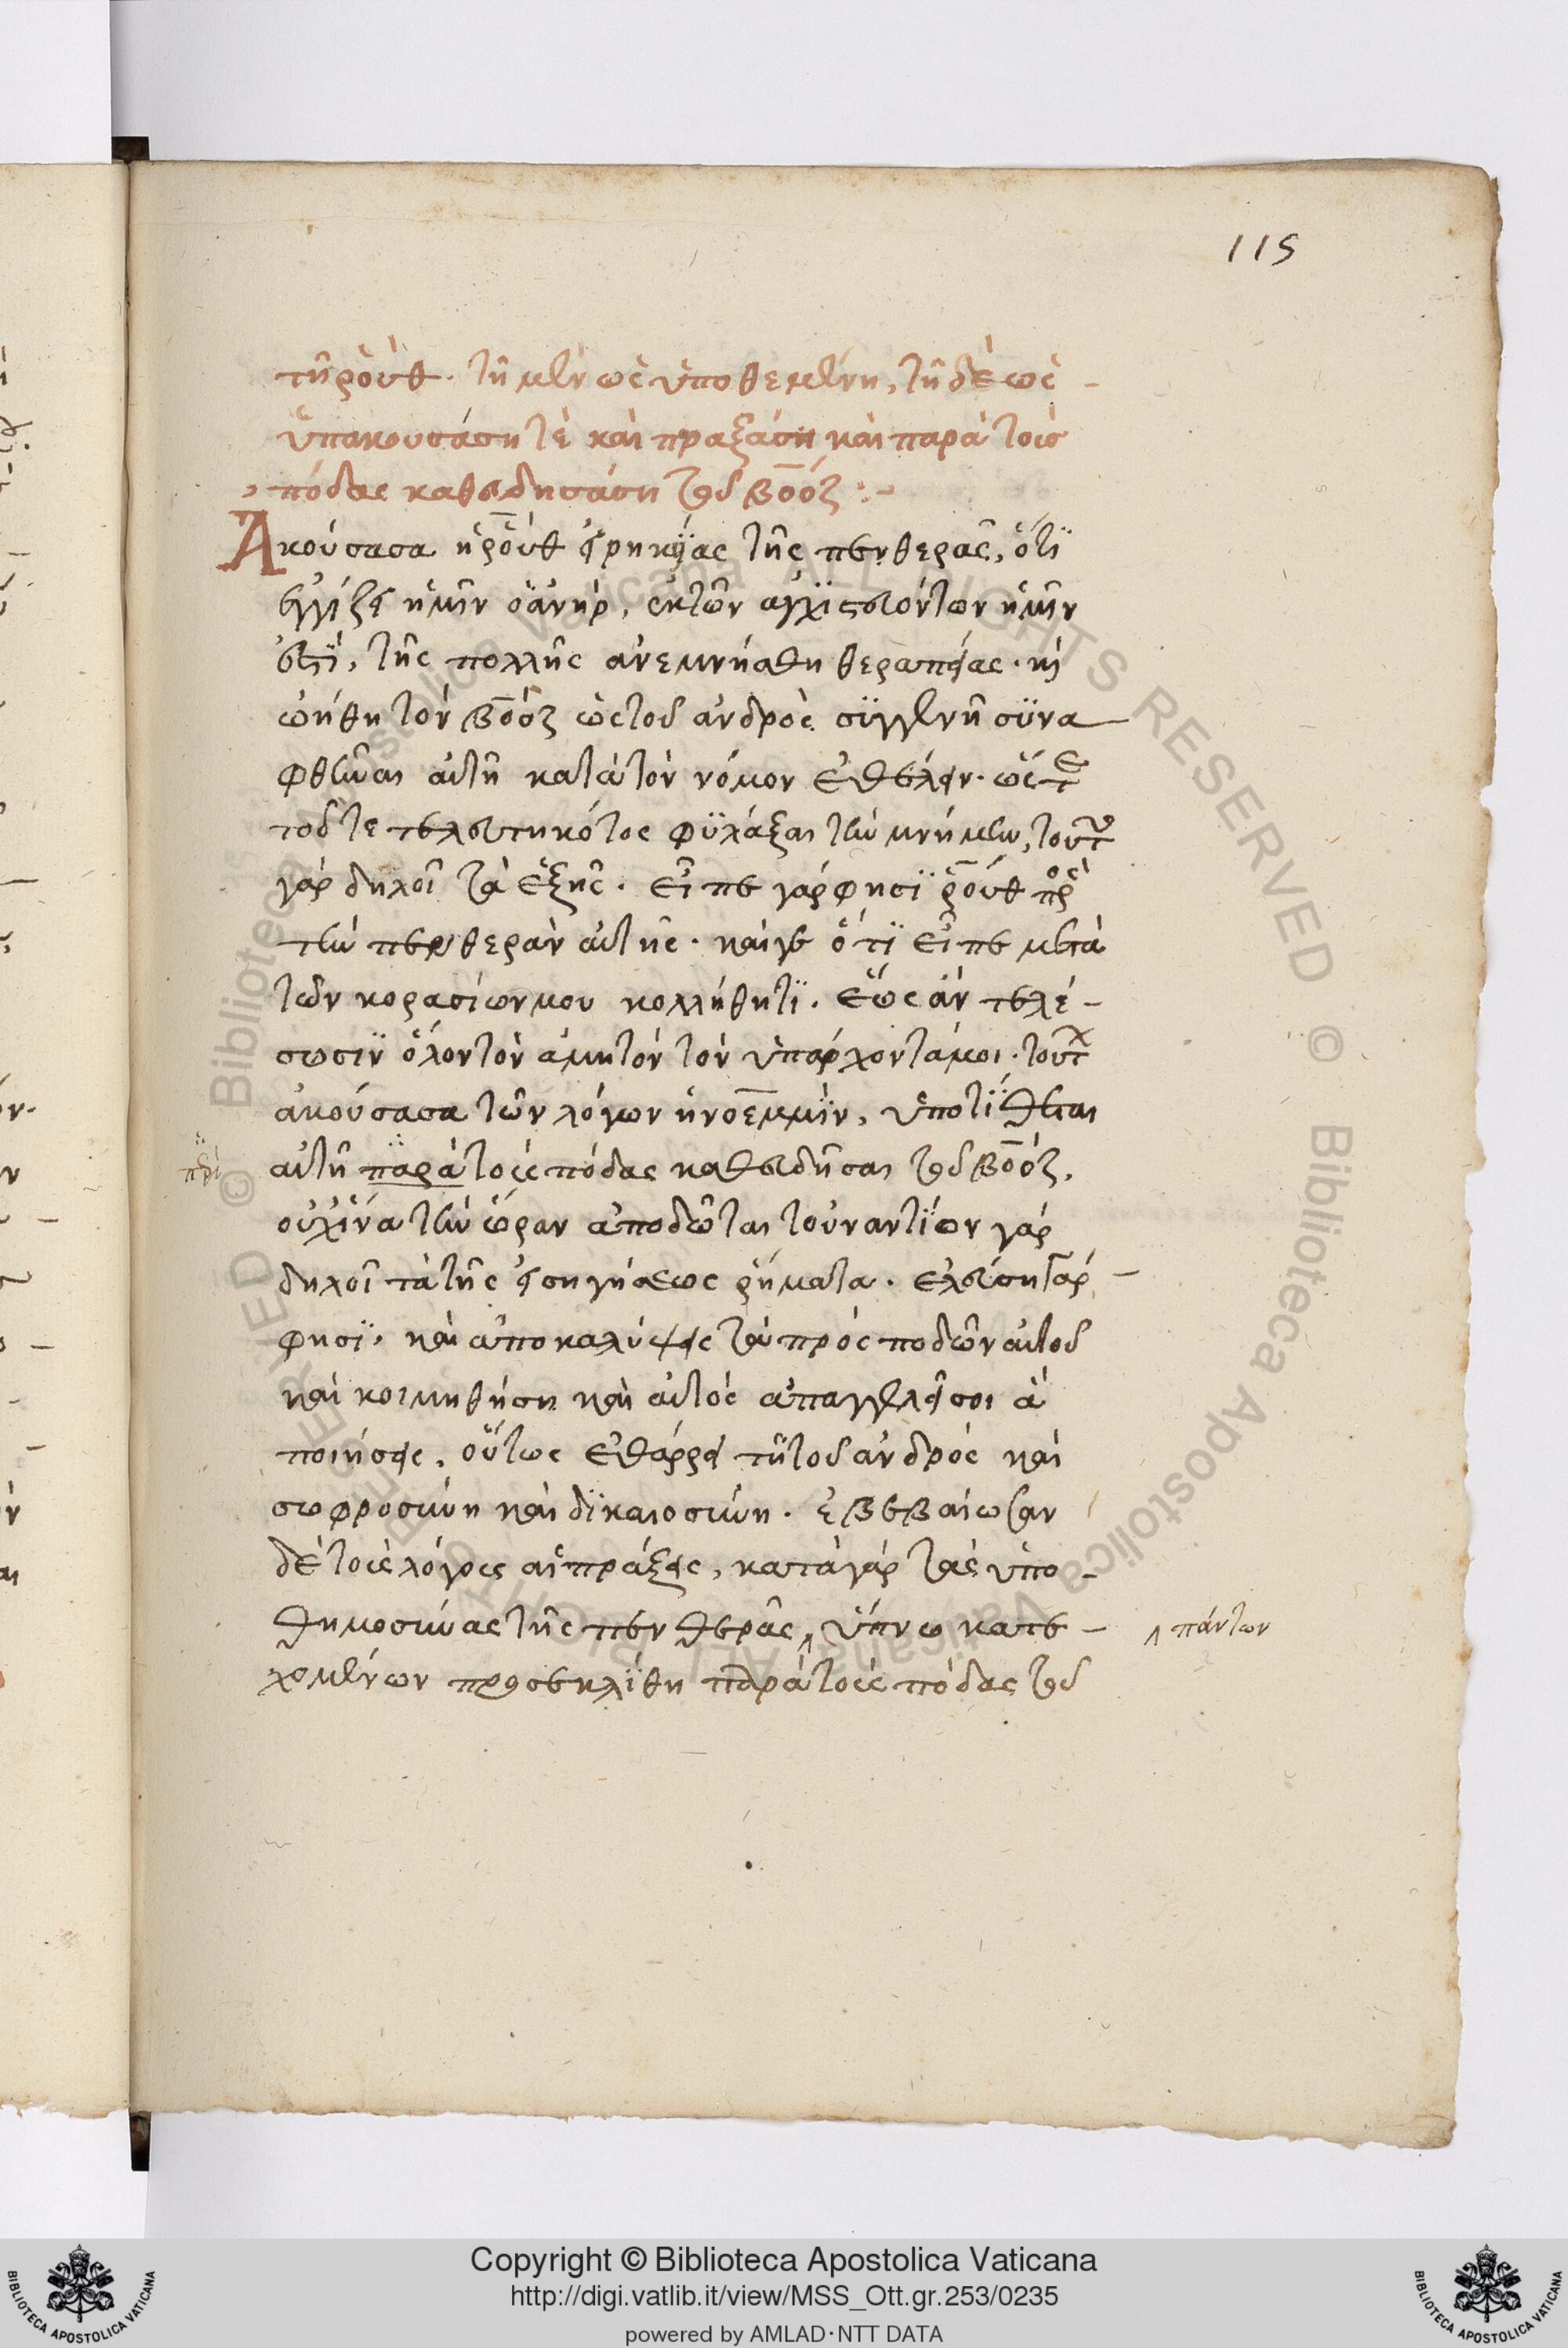 115
τῆ ῥοὺθ· τῆ μὲν ὡς ὑποθεμένη, τῆ δὲ ὡς –
ὑπακουσάση τὲ καὶ πραξάση καὶ παρὰ τοῖς
πόδας καθευδησάση τοῦ βοόζ :–
Ἀκούσασα ἡ ῥοὺθ εἰρηκυΐας τῆς πενθερᾶς, ὅτϊ
ἐγγίζει ἡμῖν ὁ ἀνὴρ, ἐκ τῶν ἀγχϊστευόντων ἡμῖν
ἐστΐ, τῆς πολλῆς ἀνεμνήσθη θεραπείας· καὶ
ὠήθη τὸν βοόζ ὡς τοῦ ἀνδρὸς σϋγγενῆ σϋνα
φθῆναι αὐτῆ κατὰ τὸν νόμον ἐθέλειν· ὥστε
τοῦ τετελευτηκότος φϋλάξαι τὴν μνήμην, τοῦτο
γὰρ δηλοῖ τὰ ἑξῆς· εἶπε γάρ φησϊ ῥοὺθ πρὸς
τὴν πενθερὰν αὐτῆς· καίγε ὅτϊ εἶπε μετὰ
τῶν κορασίων μου κολλήθητϊ· ἕως ἂν τελέ –
σωσιν ὅλον τὸν ἀμητὸν τὸν ὑπάρχοντά μοι· τούτων
ἀκούσασα τῶν λόγων ἡ νοεμμὶν, ὑποτίθεται
αὐτῆ παρὰ τοῖς πόδας καθευδῆσαι τοῦ βοόζ.
οὐχ ἵνα τὴν ὥραν ἀποδῶται τοὐναντΐον γὰρ
δηλοῖ τὰ τῆς εἰσηγήσεως ῥήματα· ἐλεύση γὰρ –
φησΐ, καὶ ἀποκαλύψεις τὰ πρὸς ποδῶν αὐτοῦ
καὶ κοιμηθήση καὶ αὐτὸς ἀπαγγελεῖ σοι ἃ
ποιήσεις. οὕτως ἐθάρρει τῆ τοῦ ἀνδρὸς καὶ
σωφροσύνη καὶ δϊκαιοσύνη· ἐβεβαίωσαν
δὲ τοῖς λόγοις αἱ πράξεις, κατὰ γὰρ τὰς ὑπο –
θημοσύνας τῆς πενθερᾶς, ὕπνω κατε – πάντων
χομένων προσεκλΐθη παρὰ τοῖς πόδας τοῦ
Copyright © Biblioteca Apostolica Vaticana
http://digi.vatlib.it/view/MSS_Ott.gr.253/0235
powered by AMLAD·NTT DATA